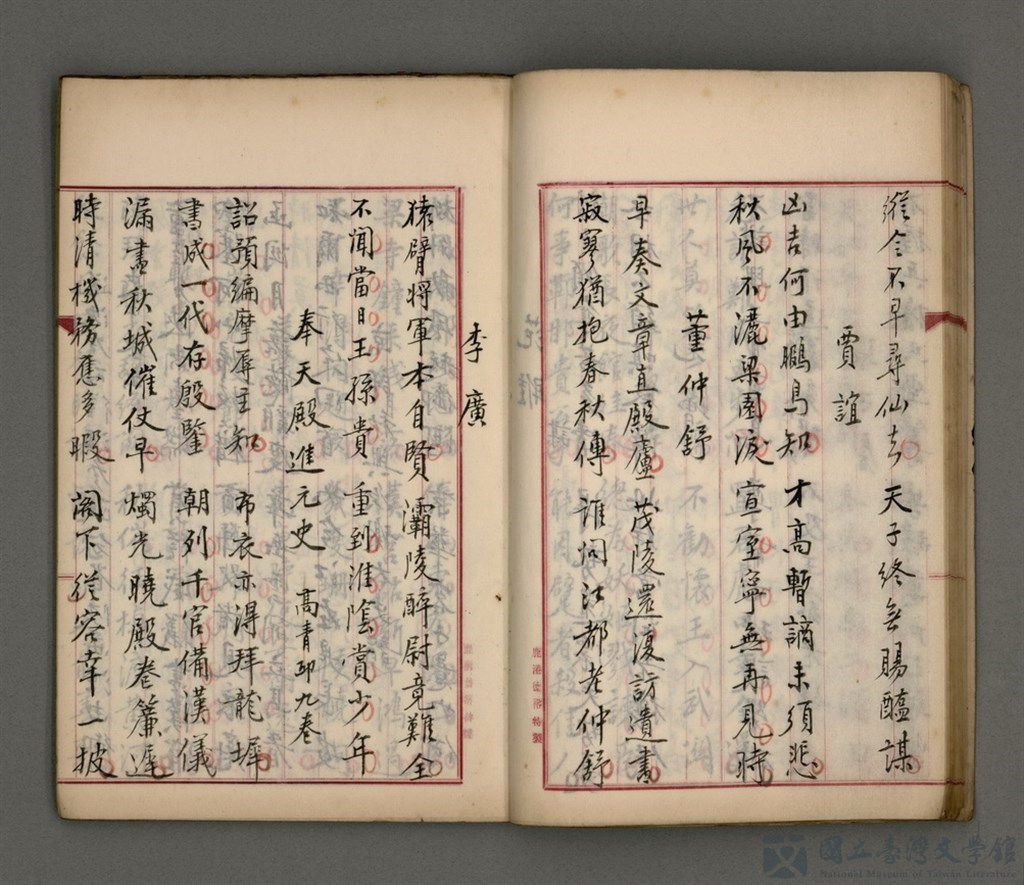 縱令不早尋仙去 天子終無賜醢謀
賈誼
凶吉何由鵩鳥知 才高暫謫未須悲
秋風不灑梁園淚 宣室寧無再見時
董仲舒
早奏文章直殿廬 茂陵還復訪遺書
寂寥猶抱春秋傳 誰問江都老仲舒
李廣
猿臂將軍本自賢 灞陵醉尉竟難全
不聞當日王孫貴 重到淮陰賞少年
奉天殿進元史 高青邱九卷
詔預編摩辱主知 布衣亦得拜龍墀
書成一代存殷鑒 朝列千官備漢儀
漏盡秋城催仗早 燭光曉殿卷簾遲
時清機務應多暇 閣下從容幸一披
鹿港信昌特製
國立臺灣文學館
National Museum of Taiwan Literature